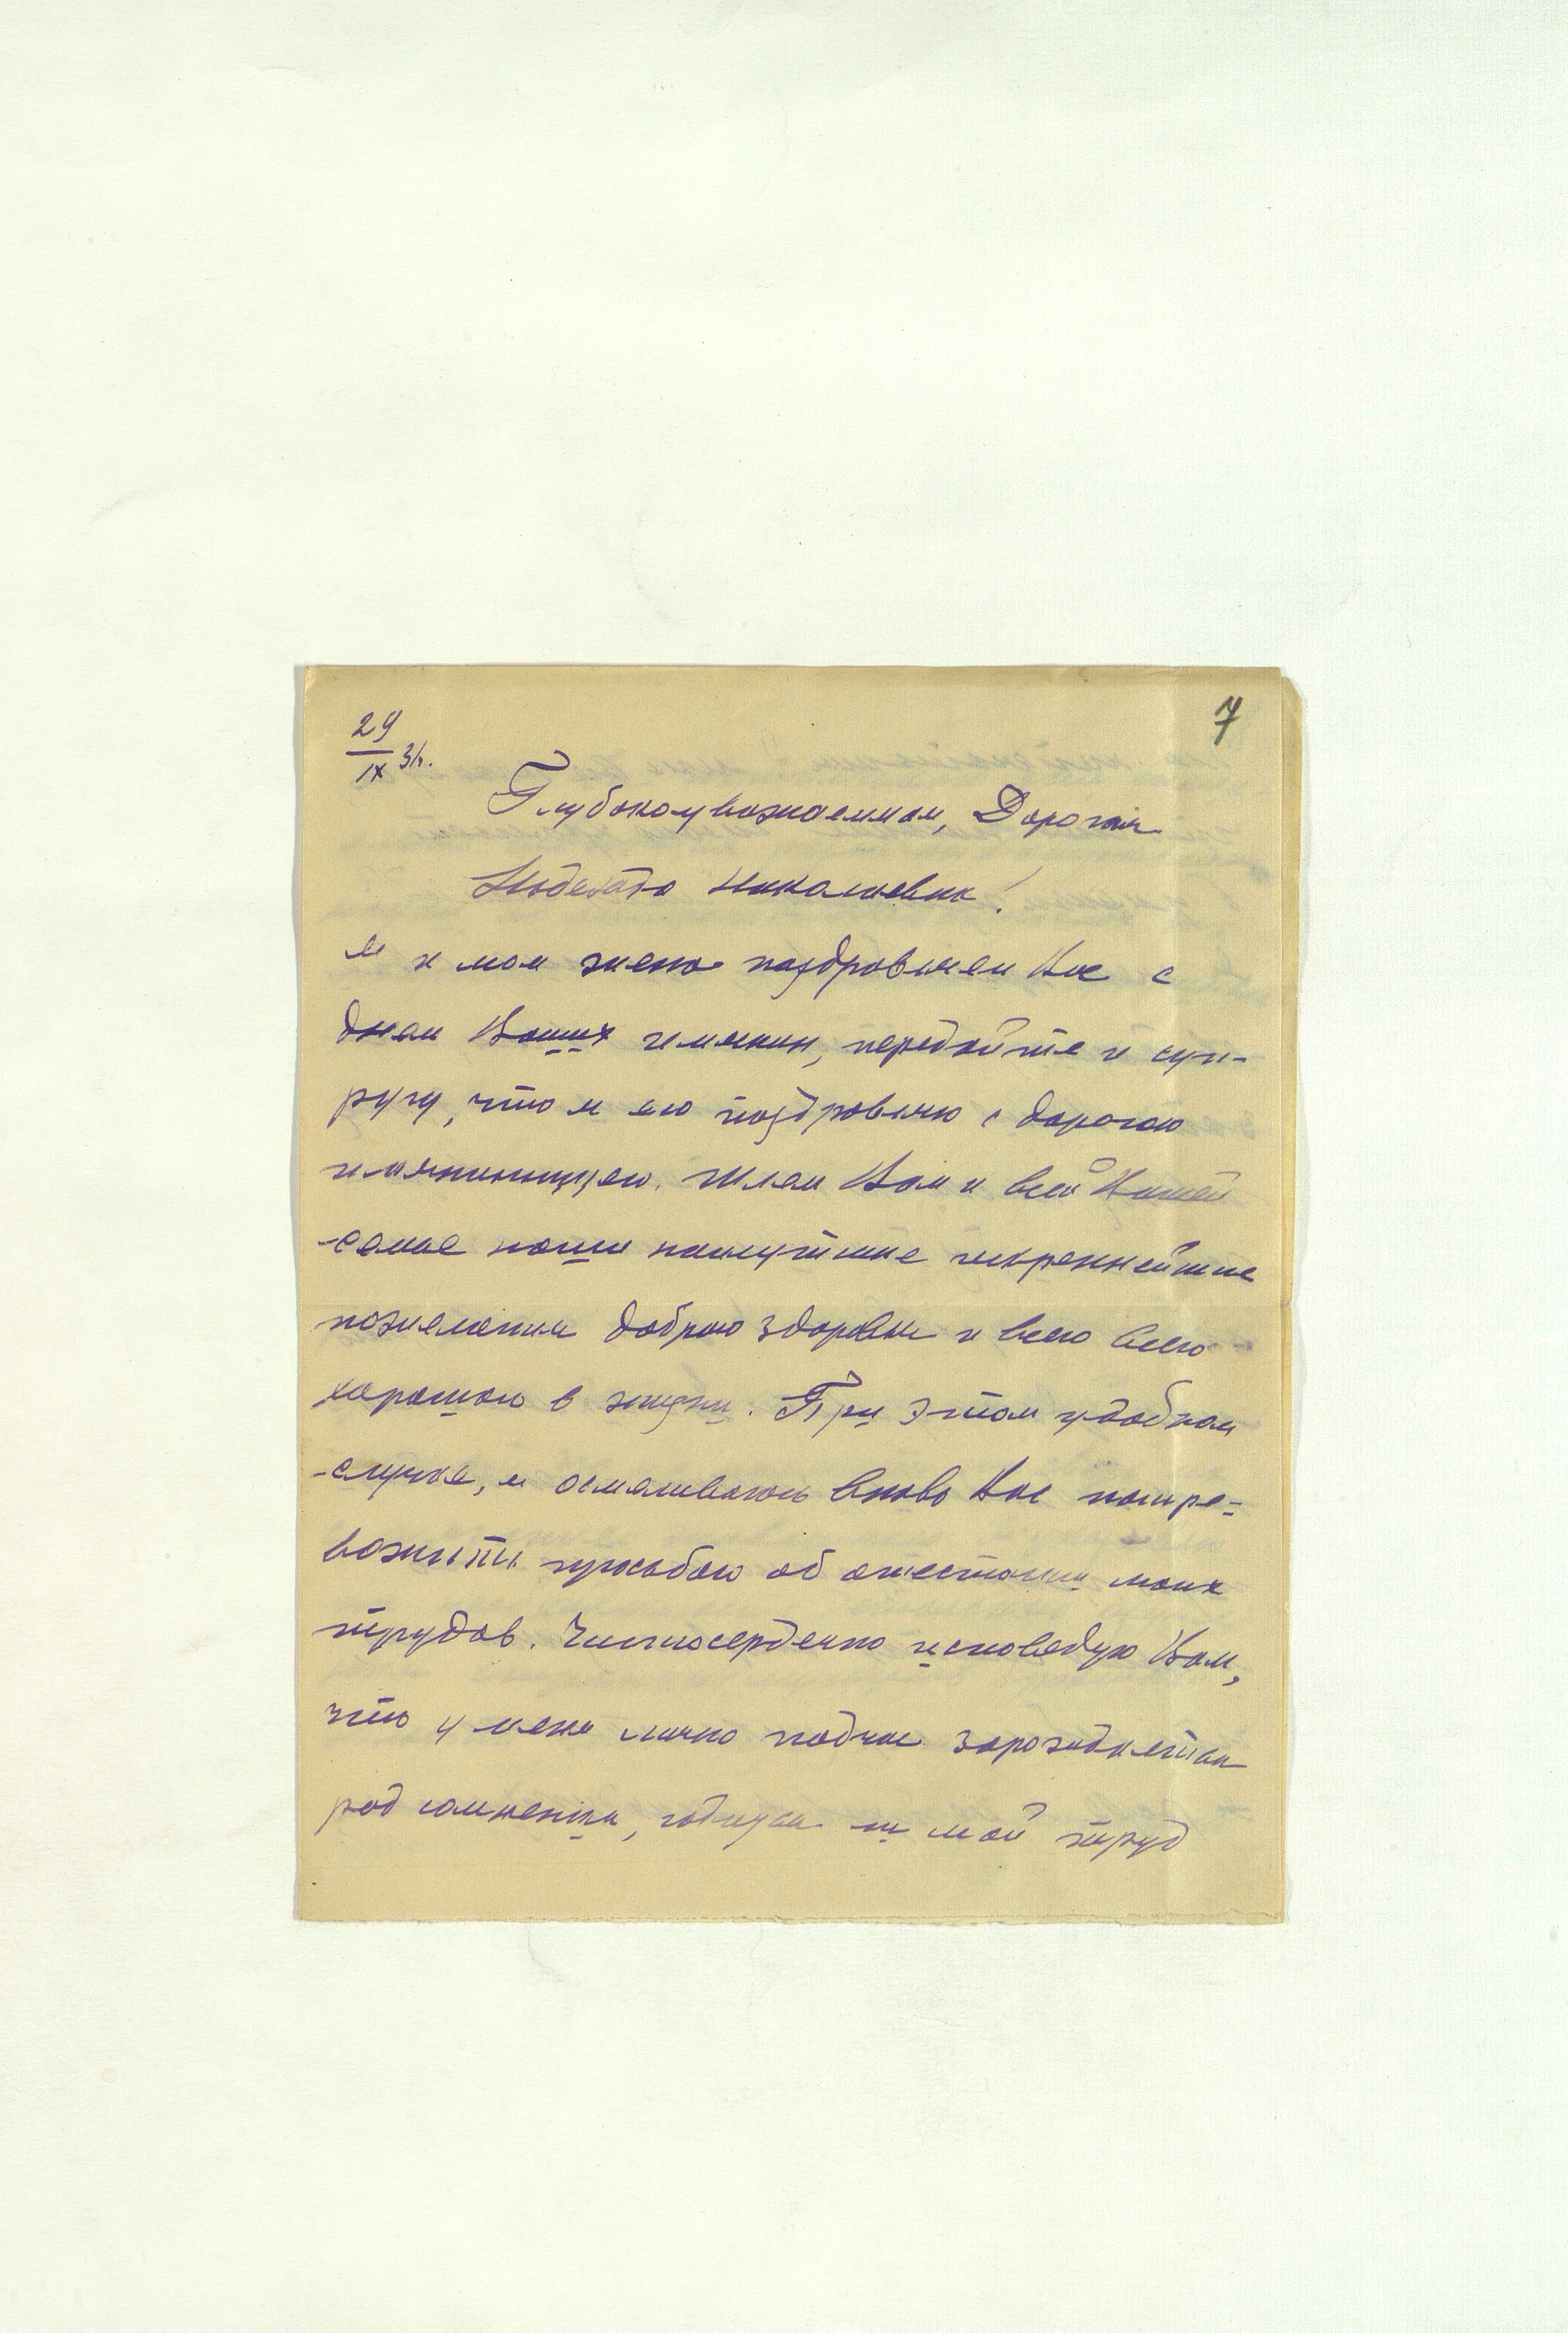 7
29/IX 31г.
Глубокоуважаемая, Дорогая
Надежда Николаевна!
Я и моя жена поздравляем Вас с
днем Ваших имянин, передайте и суп-
ругу, что я его поздравляю с дорогою
имянинницею. Шлем Вам и всей Вашей
семье наши наилутшие искреннейшие
пожелания доброго здоровья и всего всего
хорошого в жизни. При этом удобном
случае, я осмеливаюсь вновь Вас потре-
вожить просьбою об аттестации моих
трудов. Чистосердечно исповедую Вам,
что у меня лично подчас зарождается
род сомнения, годится ли мой труд